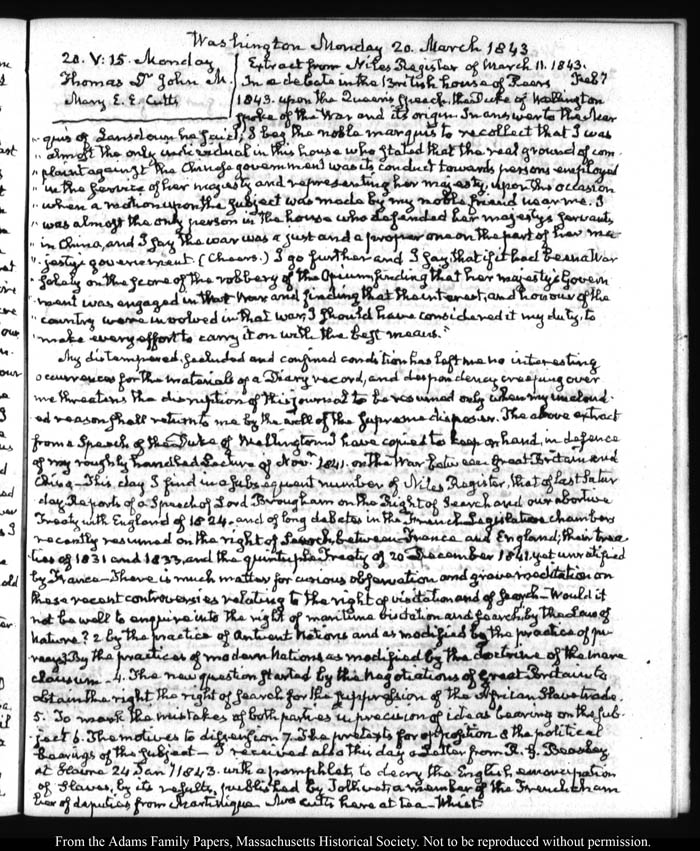 Washington Monday 20. March 1843
20. V: 15. Monday
Thomas Dr John M.
Mary E. E. Cutts
Extract from Niles Register of March 11. 1843.
In a debate in the British house of Peers Feb 7
1843. upon the Queen's speech, the Duke of Wellington
spoke of the War and its origin. In answer to the Mar
"quis of Lansdowne he said, I beg the noble marquis to recollect that I was
"almost the only individual in this house who stated that the real ground of com-
"plaint against the Chinese government was its conduct towards persons employed
"in the service of her majesty and representing her majesty, upon the occasion
"when a motion upon the subject was made by my noble friend near me. I
"was almost the only person in the house who defended her majesty's servants
"in China, and I say the war was a just and a proper one on the part of her ma
"jesty's government. (Cheers.) I go further and I say, that if it had been a War
"solely on the score of the robbery of the Opium, finding that her majesty's Govern
"ment was engaged in that War and finding that the interest, and honour of the
"country were involved in that war, I should have considered it my duty, to
"make every effort to carry it on with the best means."
My distempered, secluded and confined condition has left me no interesting
occurrences for the materials of a Diary record, and despondency creeping over
me threatens the disruption of this journal to be resumed only when my uncloud-
ed reason shall return to me by the will of the supreme disposer. The above extract
from a Speech of the Duke of Wellington I have copied to keep on hand, in defence
of my roughly handled Lecture of Novr. 1841. on the War between Great Britain and
China - This day I find in a subsequent number of Niles Register, that of last Satur
day Reports of a Speech of Lord Brougham on the Right of Search and our abortive
Treaty with England of 1824. and of long debates in the French Legislative chambers
recently resumed on the right of Search between France and England; their trea
ties of 1831 and 1833, and the quintuple Treaty of 20 December 1841. yet unratified
by France - There is much matter for curious observation and grave meditation on
these recent controversies relating to the right of visitation and of search - Would it
not be well to enquire into the right of maritime visitation and search, by the Law of
Nature? 2 by the practice of Antient Nations and as modified by the practice of pi
racy? 3 By the practice of modern Nations as modified by the doctrine of the mare
clausum - 4. The new question started by the Negotiations of Great Britain to
obtain the right the right of search for the suppression of the African Slave trade.
5. To mark the mistakes of both parties in precision of ideas bearing on the sub-
ject 6. The motives to dissension 7. The pretexts for opposition 8 the political
bearings of the Subject - I received also this day a Letter from R. G. Beasley
at Havre 24 Jany 1843. with a pamphlet, to decry the English emancipation
of Slaves, by its results, published by Jollivet, a member of the French cham
ber of deputies from Martinique Mrs Cutts here at tea - Whist.
From the Adams Family Papers, Massachusetts Historical Society. Not to be reproduced without permission.